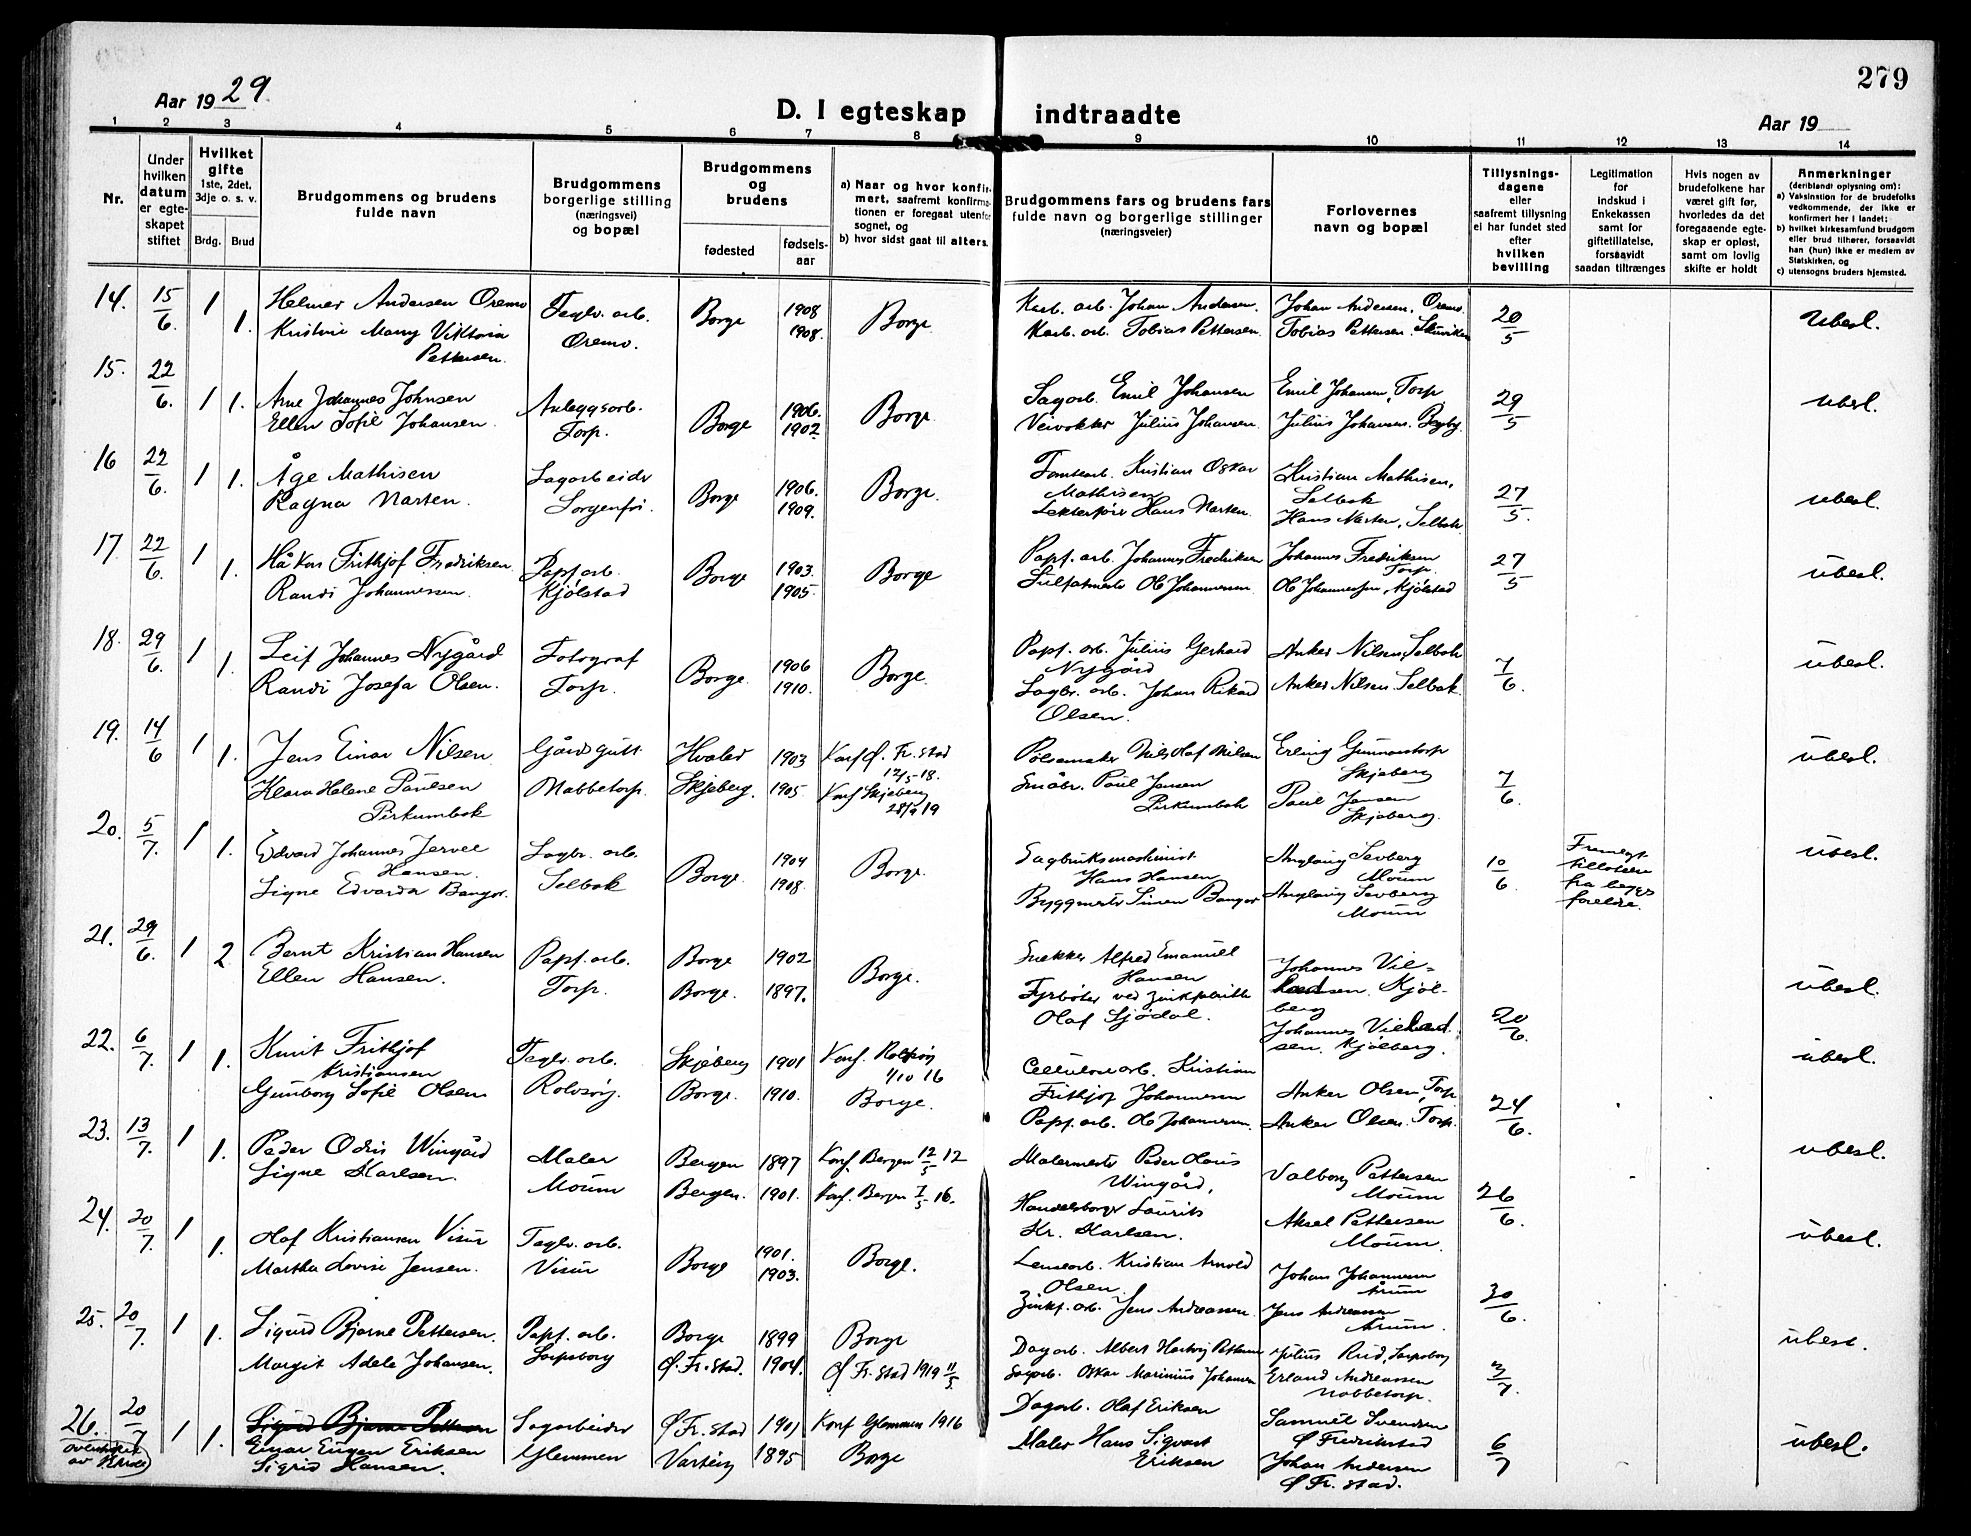 279
Aar 1929.
D. I egteskap indtraadte
Aar 19
1 2 3 4 5 6 7 8 9 10 11 12 13 14
Nr.
Under hvilken datum er egteskapet stiftet
Hvilket gifte
1ste, 2det, 3dje o. s. v.
Brdg. Brud
Brudgommens og brudens fulde navn
Brudgommens borgerlige stilling (næringsvei) og bopæl
Brudgommens og brudens
fødested
fødselsaar
a) Naar og hvor konfirmert, saafremt konfirmationen er foregaat utenfor sognet, og
b) hvor sidst gaat til alters.
Brudgommens fars og brudens fars fulde navn og borgerlige stillinger (næringsveier)
Forlovernes navn og bopæl
Tillysningsdagene eller saafremt tillysning ei har fundet sted efter hvilken bevilling
Legitimation for indskud i Enkekassen samt for giftetillatelse, forsaavidt saadan tiltrænges
Hvis nogen av brudefolkene har været gift før, hvorledes da det foregaaende egteskap er opløst, samt om lovlig skifte er holdt
Anmerkninger
(deriblandt oplysning om):
a) Vaksination for de brudefolks vedkommende, der ikke er konfirmert her i landet;
b) hvilket kirkesamfund brudgom eller brud tilhører, forsaavidt han (hun) ikke er medlem av Statskirken, og
c) utensogns bruders hjemsted.
14. 15/6. 1 1. Helmer Andersen Oremo Teglv. arb. Borge 1908 Borge Karb. arb. Johan Andersen. Johan Andersen, Oremo 20/5 Ubesl.
Kristine Marry Viktoria Pettersen. Oremo. 1908. Karb. arb. Tobias Pettersen. Tobias Pettersen.
15. 22/6. 1 1. Arne Johannes Johnsen Anleggsarb. Borge 1906. Borge. Sagarb. Emil Johansen Emil Johansen, Torp. 29/5 Ubesl.
Ellen Sofie Johansen. Torp. 1902. Veivokter Julius Johansen. Julius Johansen. Begby.
16 22/6. 1 1. Åge Mathisen Sagarbeider Borge 1906. Borge. Kristian Oskar Mathisen Kristian Mathisen, Selbak 27/5. Ubesl.
Ragna Narten. Sorgenfri. 1909. Hans Narten. Hans Narten, Selbak
17. 22/6. 1 1. Håkon Frithjof Fredriksen. Papf. arb. Borge 1903. Borge Papf. arb. Johannes Fredriksen Johannes Fredriksen Torp. 27/5 Ubesl.
Randi Johannessen. Kjølstad 1905. Sulfatmester Ole Johannessen. Ole Johannessen, Kjølstad
18. 29/6. 1 1. Leif Johannes Nygård Fotograf Borge. 1906 Borge. Papf. arb. Julius Gerhard Nygård Anker Nilsen, Selbak 7/6. Ubesl.
Randi Josefa Olsen. Torp. 1910. Sagbr. arb. Johan Rikard Olsen. Anker Nilsen Selbak.
19. 14/6 1 1. Jens Einar Nilsen Gårdsgutt Hvaler 1903 Konf. Ø. Fr. stad 12/5-18. Pølsemaker Nils Olaf Nilsen Erling Gunnarstorp Skjeberg 7/6. Ubesl.
Klara Helene Paulsen Pirkumbak Nabbetorp. Skjeberg. 1905 Konf. Skjeberg 28/9 19 Småbr. Paul Jensen Pirkumbak Paul Jensen Skjeberg.
20. 5/7. 1 1. Edvard Johannes Jervel Hansen. Sagbr. arb. Borge. 1904 Borge. Sagbruksmaskinist Hans Hansen Anglaug Sevberg Moum 10/6. Fremlagt tillatelse fra begge foreldre. Ubesl.
Signe Edvarda Bangor. Selbak 1908. Byggmester Simen Bangor Anglaug Sevberg Moum
21. 29/6. 1 2 Bernt Kristian Hansen Papf. arb. Borge 1902 Borge. Snekker Alfred Emanuel Hansen Johannes Vilhardsen. Kjølberg 20/6. Ubesl.
Ellen Hansen. Torp. Borge. 1897. Fyrbøter ved Zinkfabrikk Olaf Sjødal. Johannes Vilhardsen. Kjølberg.
22. 6/7. 1 1. Knut Frithjof Kristiansen Teglv. arb. Skjeberg 1901 Konf. Rolvsøy 1/10 16 Cellulosearb. Kristian Frithjof Johannessen Anker Olsen, Torp 24/6. Ubesl.
Gunborg Sofie Olsen Rolvsøy. Borge. 1910. Borge. Papf. arb. Ole Johannessen. Anker Olsen. Torp.
23. 13/7. 1 1. Peder Odin Wingård Maler Bergen 1897 Konf. Bergen 12/5 12 Malermester Peder Wingård, Valborg Pettersen Moum 26/6. Ubesl.
Signe Karlsen. Moum Bergen. 1901. Konf. Bergen 7/5 16. Handelsborger Laurits Kr. Karlsen. Aksel Pettersen Moum.
24. 20/7. 1 1. Olaf Kristiansen Visur Teglv. arb. Borge 1901. Borge. Lensearb. Kristian Arnold Olsen Johan Johannessen Årum 30/6 Ubesl.
Martha Lovise Jensen. Visur 1903. Zinkf. arb. Jens Andreassen. Jens Andreassen Årum.
25. 20/7. 1 1. Sigurd Bjarne Pettersen. Papf. arb. Borge 1899 Borge Dagarb. Albert Hartvig Pettersen Julius Rud, Sarpsborg 3/7. Ubesl.
Margit Adele Johansen. Sarpsborg Ø. Fr. stad. 1904. Ø Fr. stad 1919 11/5. Sagarb. Oskar Marinius Johansen Erland Andreassen Nabbetorp.
26. 20/7 1 1. Sigurd Bjarne Pettersen Sagarbeider Ø Fr. stad 1901 Konf Glemmen 1916 Dagarb. Olaf Eriksen Samuel Svendsen Ø Fredrikstad 6/7 Ubesl.
Einar Eugen Eriksen
Sigrid Hansen. Glemmen Varteig 1895 Borge Maler Hans Sigvart Eriksen Johan Andersen Ø Fr. stad.